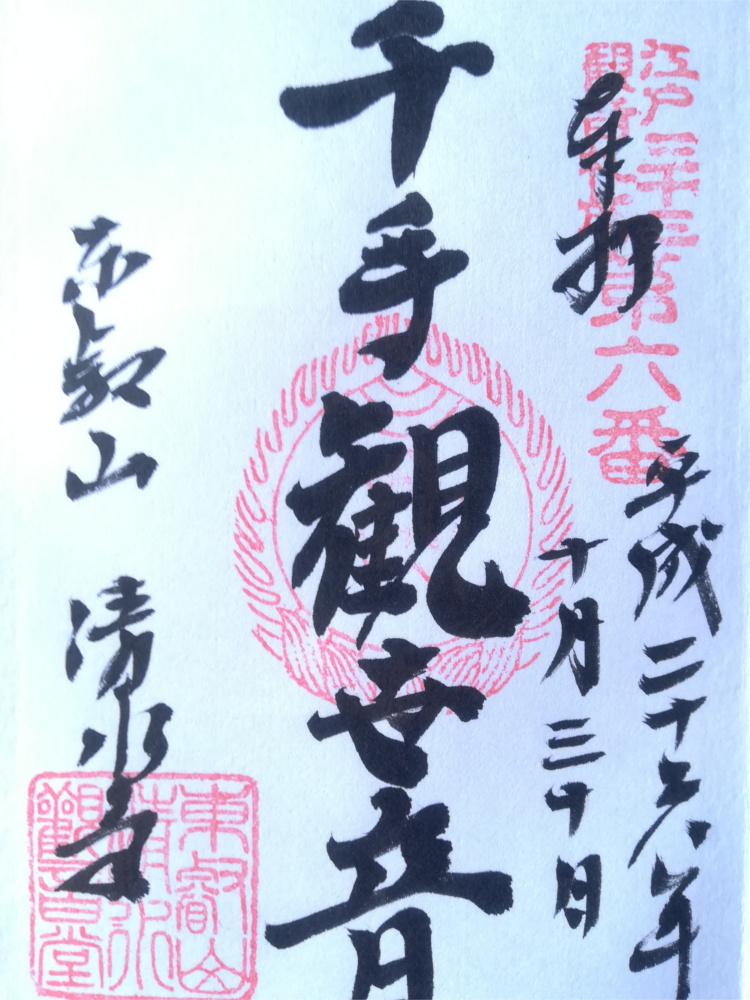 江戸三十三
観音札所
第六番
奉拝
平成二十六年
十月三十日
千手観世音
東叡山 清水寺
東叡山
清水
觀音堂